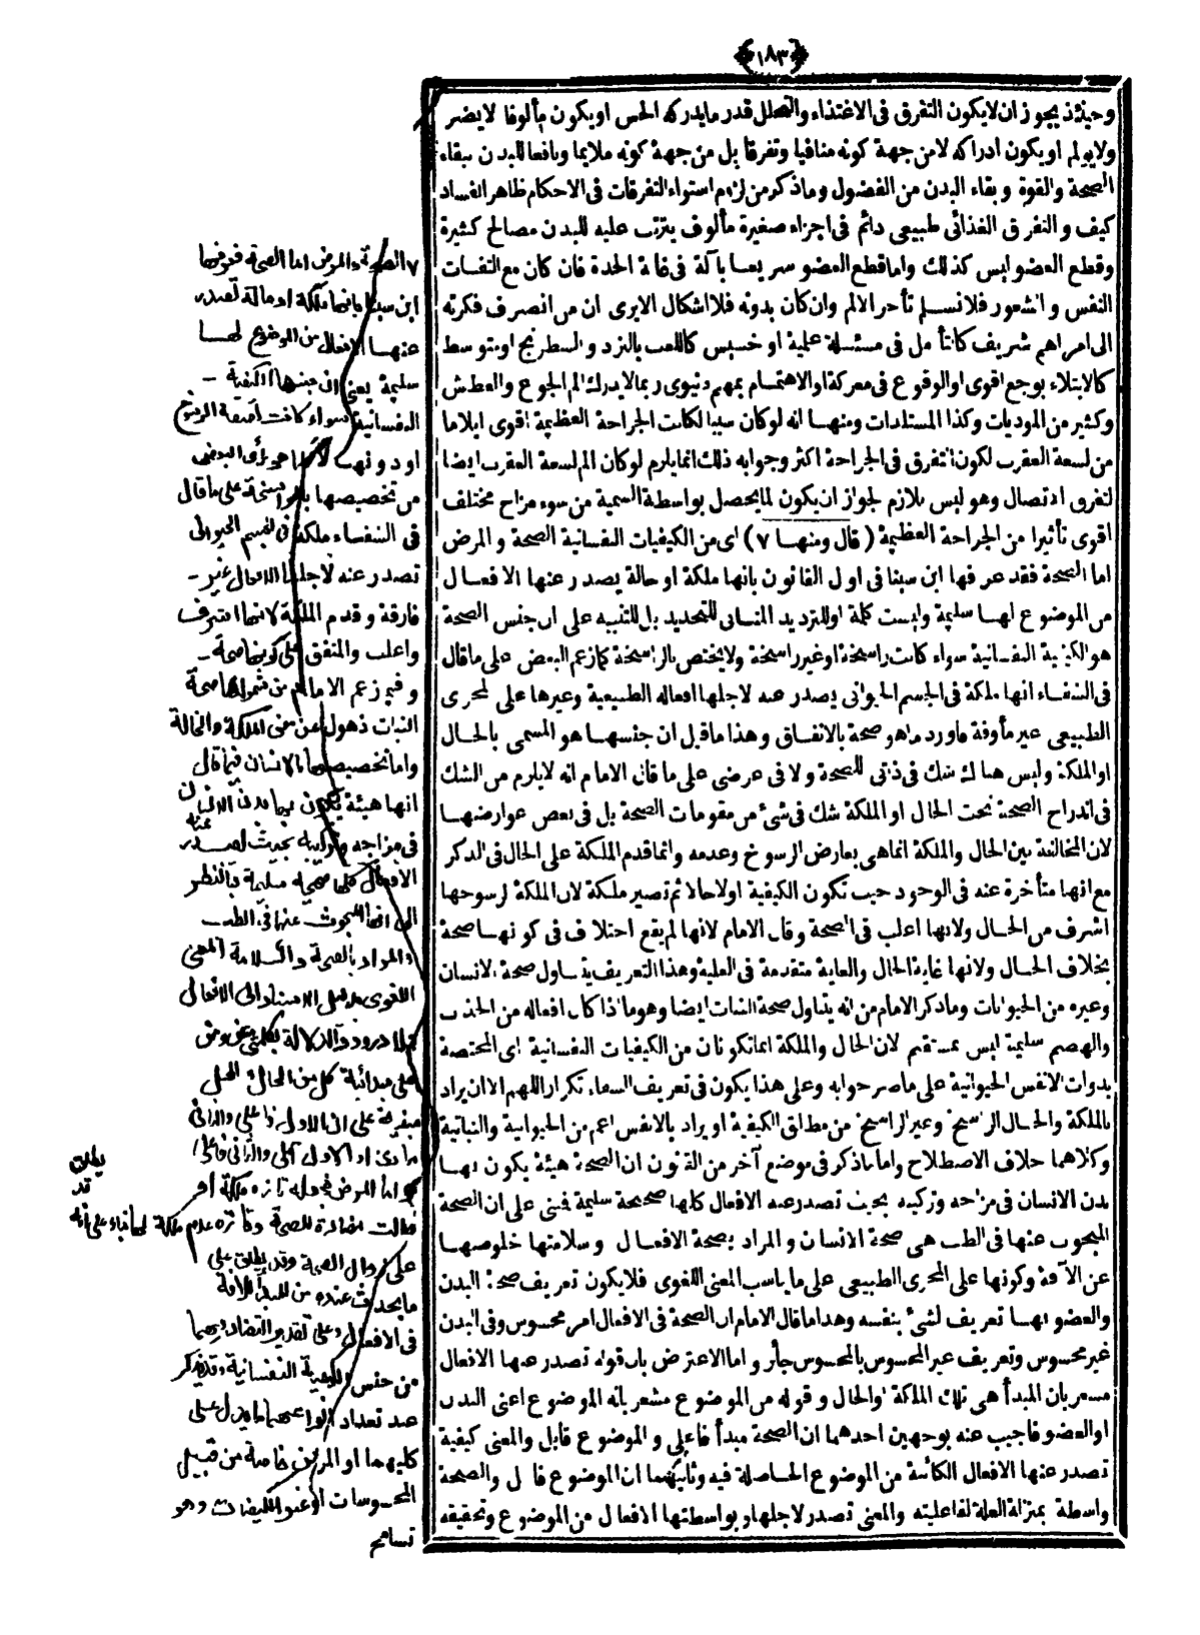 ﴿١٨٣﴾
وحينئذ يجوز ان لا يكون التفرق فى الاغتذاء والتحلل قدر ما يدركه الحس او يكون مألوفا لا يضر
ولا يولم او يكون ادراكه لا من جهة كونه منافيا وتفرقا بل من جهة كونه ملايما ونافعا للبدن ببقاء
الصحة والقوة وبقاء البدن من الفضول وما ذكر من لزوم استواء التفرقات فى الاحكام ظاهر الفساد
كيف والتفرق الغذائى طبيعى دائم فى اجزاء صغيرة مألوف يترتب عليه للبدن مصالح كثيرة
وقطع العضو ليس كذلك واما قطع العضو سريعا بآلة فى غاية الحدة فان كان مع التفات
النفس والشعور فلا نسلم تأخر الالم وان كان بدونه فلا اشكال الا يرى ان من انصرف فكرته
الى امر اهم شريف كالتأمل فى مسئلة علمية او خسيس كاللعب بالنرد والشطرنج او متوسط
كالابتلاء بوجع اقوى او الوقوع فى معركة او الاهتمام بمهم دنيوى ربما لا يدرك الم الجوع والعطش
وكثير من الموذيات وكذا المستلذات ومنها انه لو كان سببا لكانت الجراحة العظيمة اقوى ايلاما
من لسعة العقرب لكون التفرق فى الجراحة اكثر وجوابه ذلك انما يلزم لو كان الم لسعة العقرب ايضا
لتفرق الاتصال وهو ليس بلازم لجواز ان يكون لما يحصل بواسطة السمية من سوء مزاج مختلف
اقوى تأثيرا من الجراحة العظيمة ( قال ومنها ٧ ) اى من الكيفيات النفسانية الصحة والمرض
اما الصحة فقد عرفها ابن سينا فى اول القانون بانها ملكة او حالة يصدر عنها الافعال
من الموضوع لها سليمة وليست كلمة او للترديد المنافى للتحديد بل للتنبيه على ان جنس الصحة
هو الكيفية النفسانية سواء كانت راسخة او غير راسخة ولا يختص بالراسخة كما زعم البعض على ما قال
فى الشفاء انها ملكة فى الجسم الحيوانى يصدر عنه لاجلها افعاله الطبيعية وغيرها على المجرى
الطبيعى غير مأوفة فاورد ما هو صحة بالاتفاق وهذا ما قيل ان جنسها هو المسمى بالحال
او الملكة وليس هناك شك فى ذتى للصحة ولا فى عرضى على ما قال الامام انه لا يلزم من الشك
فى اندراج الصحة تحت الحال او الملكة شك فى شئ من مقومات الصحة بل فى بعض عوارضها
لان المخالفة بين الحال والملكة انما هى بعارض الرسوخ وعدمه وانما قدم الملكة على الحال فى الذكر
مع انها متأخرة عنه فى الوجود حيث تكون الكيفية اولا حالا ثم تصير ملكة لان الملكة لرسوخها
اشرف من الحال ولانها اغلب فى الصحة وقال الامام لانها لم يقع اختلاف فى كونها صحة
بخلاف الحال ولانها غاية الحال والغاية متقدمة فى العلية وهذا التعريف يتناول صحة الانسان
وغيره من الحيوانات وما ذكر الامام من انه يتناول صحة النبات ايضا وهو ما اذا كان افعاله من الجذب
والهضم سليمة ليس بمستقيم لان الحال والملكة انما تكونان من الكيفيات النفسانية اى المختصة
بذوات الانفس الحيوانية على ما صرحوا به وعلى هذا يكون فى تعريف الشفاء تكرار اللهم الا ان يراد
بالملكة والحال الراسخ وغير الراسخ من مطلق الكيفية او يراد بالانفس اعم من الحيوانية والنباتية
وكلاهما خلاف الاصطلاح واما ما ذكر فى موضع آخر من القانون ان الصحة هيئة يكون بها
بدن الانسان فى مزاجه وتركيبه بحيث تصدر عنه الافعال كلها صحيحة سليمة فمبنى على ان الصحة
المبحوث عنها فى الطب هى صحة الانسان والمراد بصحة الافعال وسلامتها خلوصها
عن الآفة وكونها على المجرى الطبيعى على ما يناسب المعنى اللغوى فلا يكون تعريف صحة البدن
والعضو بها تعريف الشئ بنفسه وهذا ما قال الامام ان الصحة فى الافعال امر محسوس وفى البدن
غير محسوس وتعريف غير المحسوس بالمحسوس جائز واما الاعتراض بان قوله تصدر عنها الافعال
مشعر بان المبدأ هى تلك الملكة والحال وقوله من الموضوع مشعر بانه الموضوع اعنى البدن
او العضو فاجيب عنه بوجهين احدهما ان الصحة مبدأ فاعلى والموضوع قابل والمعنى كيفية
تصدر عنها الافعال الكائنة من الموضوع الحاصلة فيه وثانيهما ان الموضوع فاعل والصحة
واسطة بمنزلة العلة لفاعليته والمعنى تصدر لاجلها وبواسطتها الافعال من الموضوع وتحقيقه
٧ الصحة والمرض اما الصحة فعرفها
ابن سينا بانها ملكة او حالة تصدر
عنها الافعال من الموضوع لها
سليمة يعنى ان جنسها الكيفية
النفسانية سواء كانت
او دونها لا هو رأى البعض
من تخصيصها بالراسخة على ما قال
فى الشفاء ملكة فى الجسم الحيوانى
تصدر عنه لاجلها الافعال غير
فارقة وقدم الملكة لانها اشرف
واغلب والمتفق على كونها صحة
وفيما زعم الامام من شمولها صحة
النبات ذهول عن معنى الملكة والحالة
واما تخصيصها بالانسان فيما قال
انها هيئة يكون بها بدن الانسان
فى مزاجه وتركيبه بحيث تصدر عنه
الافعال كلها صحيحة سليمة فبالنظر
الى انها المبحوث عنها فى الطب
والمراد بالصحة والسلامة المعنى
اللغوى بدليل الاسناد الى الافعال
فلا دور والدلالة بكلمتى عن ومن
على مبدائية كل من الحال والمحل
مبنية على ان الاول فاعلى والثانى
مادى او الاول آلى والثانى فاعلى
واما المرض فجعله تارة ملكة او
حالت مضادة للصحة وتارة عدم ملكة لها بناء على انه
قد يطلق
على زوال الصحة وقد يطلق على
ما يحدث عنده من المبدأ للآفة
فى الافعال وعلى تقدير التضاد فهما
من جنس الكيفية النفسانية وقد يذكر
عند تعداد انواعهما ما يدل على
كليهما او المرض خاصة من قبيل
المحسوسات او غير الكيفيات وهو
تسامح